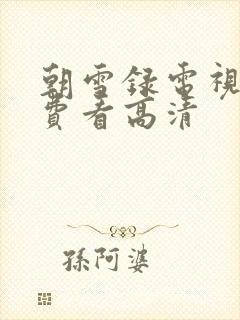 朝雪録電視
費看高清
孫阿婆